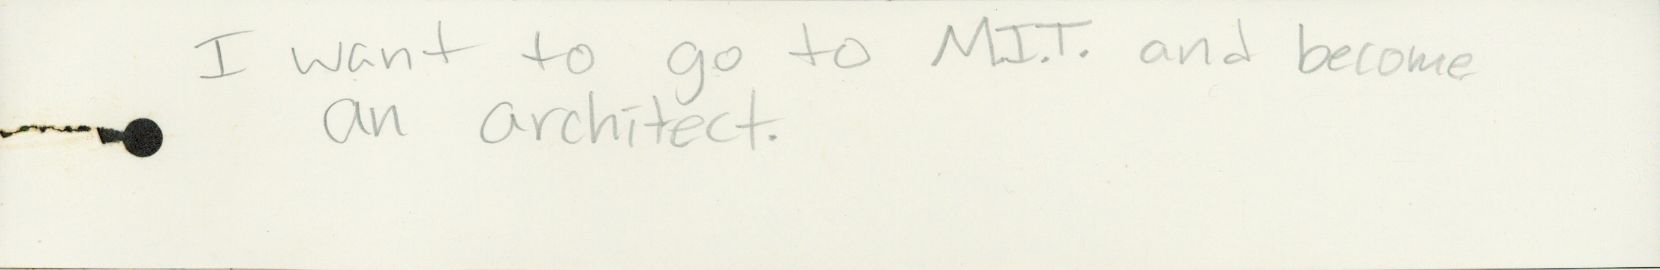 I want to go to M.I.T. and become
an architect.